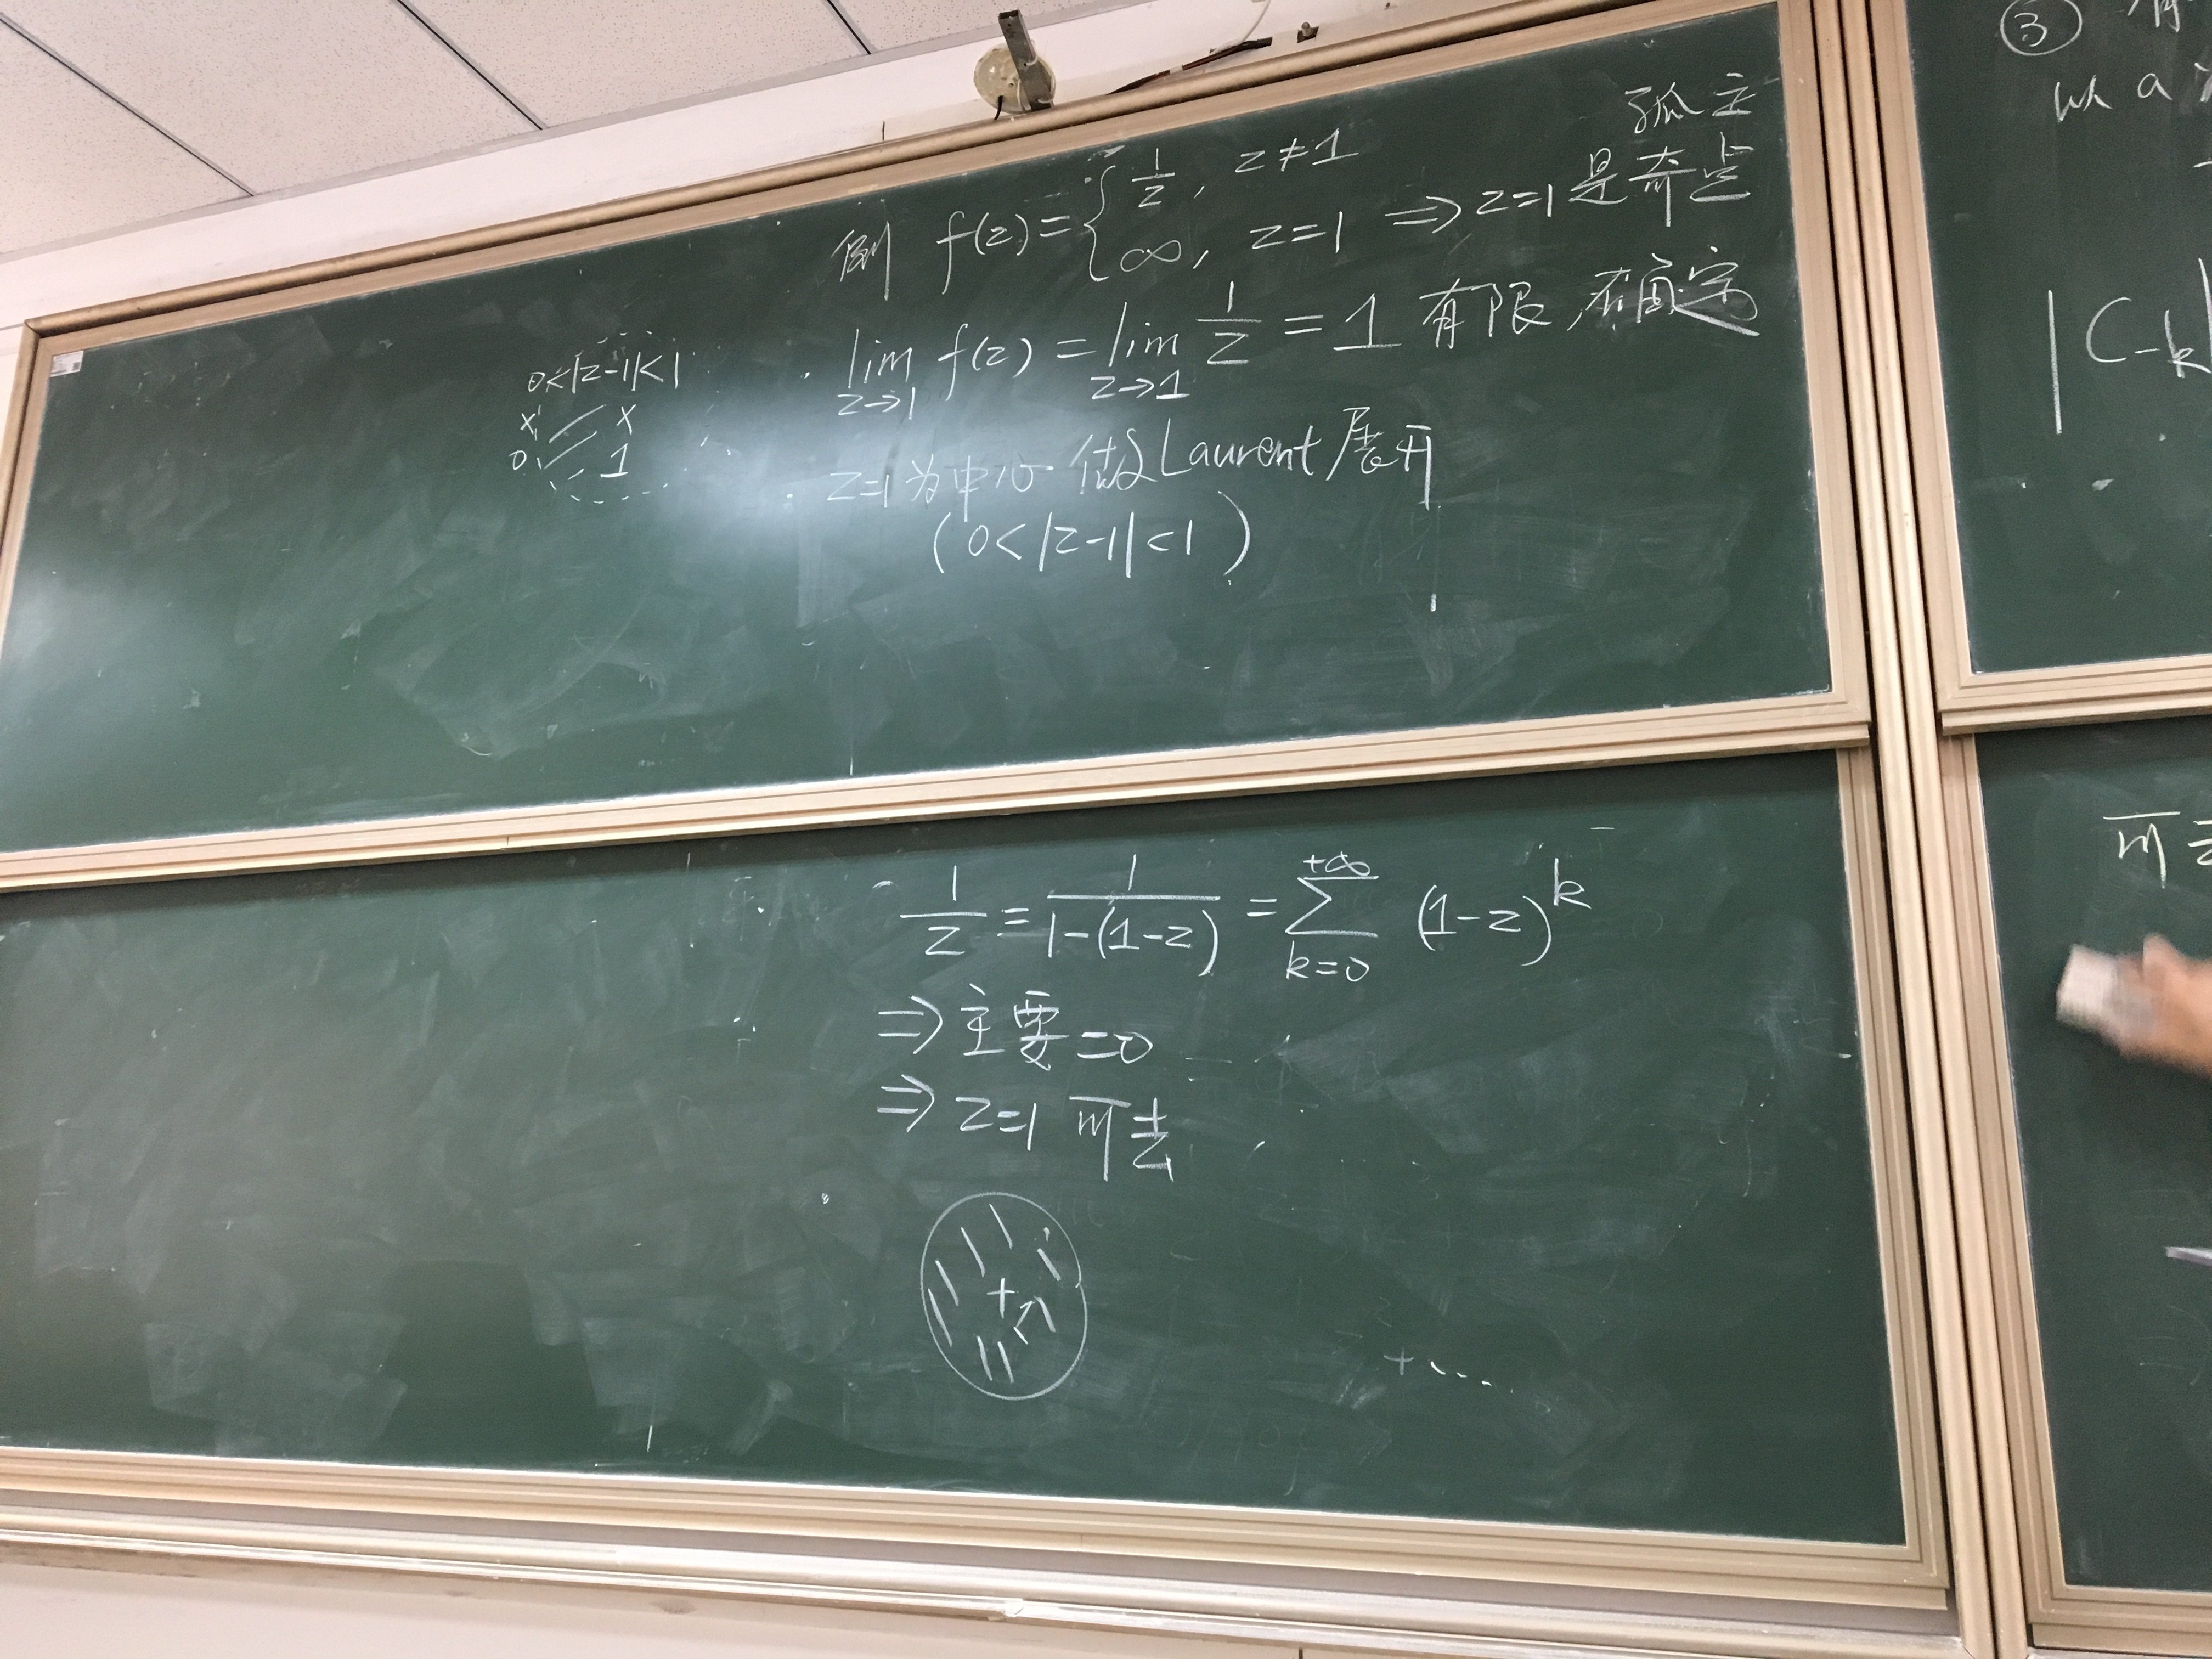 孤立
例 f(z)= { 1/z, z≠1
∞, z=1 ⇒ z=1 是奇点
lim z→1 f(z) = lim z→1 1/z = 1 有限,确定
0<|z-1|<1
x x
0 1
z=1为中心 做Laurent展开
(0<|z-1|<1)
1/z = 1/(1-(1-z)) = ∑ k=0 +∞ (1-z)^k
⇒ 主要=0
⇒ z=1 可去
+ ....
③
以 a
|C-k|
可去